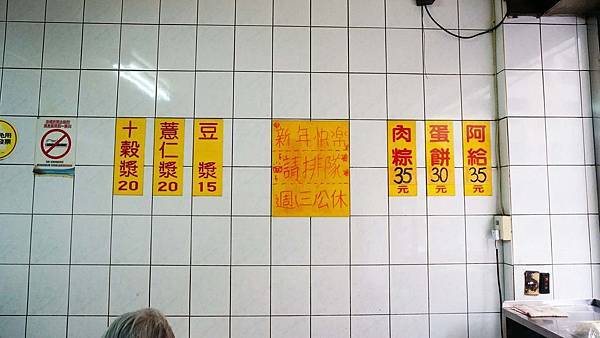 十穀漿
20
薏仁漿
20
豆漿
15
新年快樂
請排隊
週三公休
肉粽
35
元
蛋餅
30
元
阿給
35
元